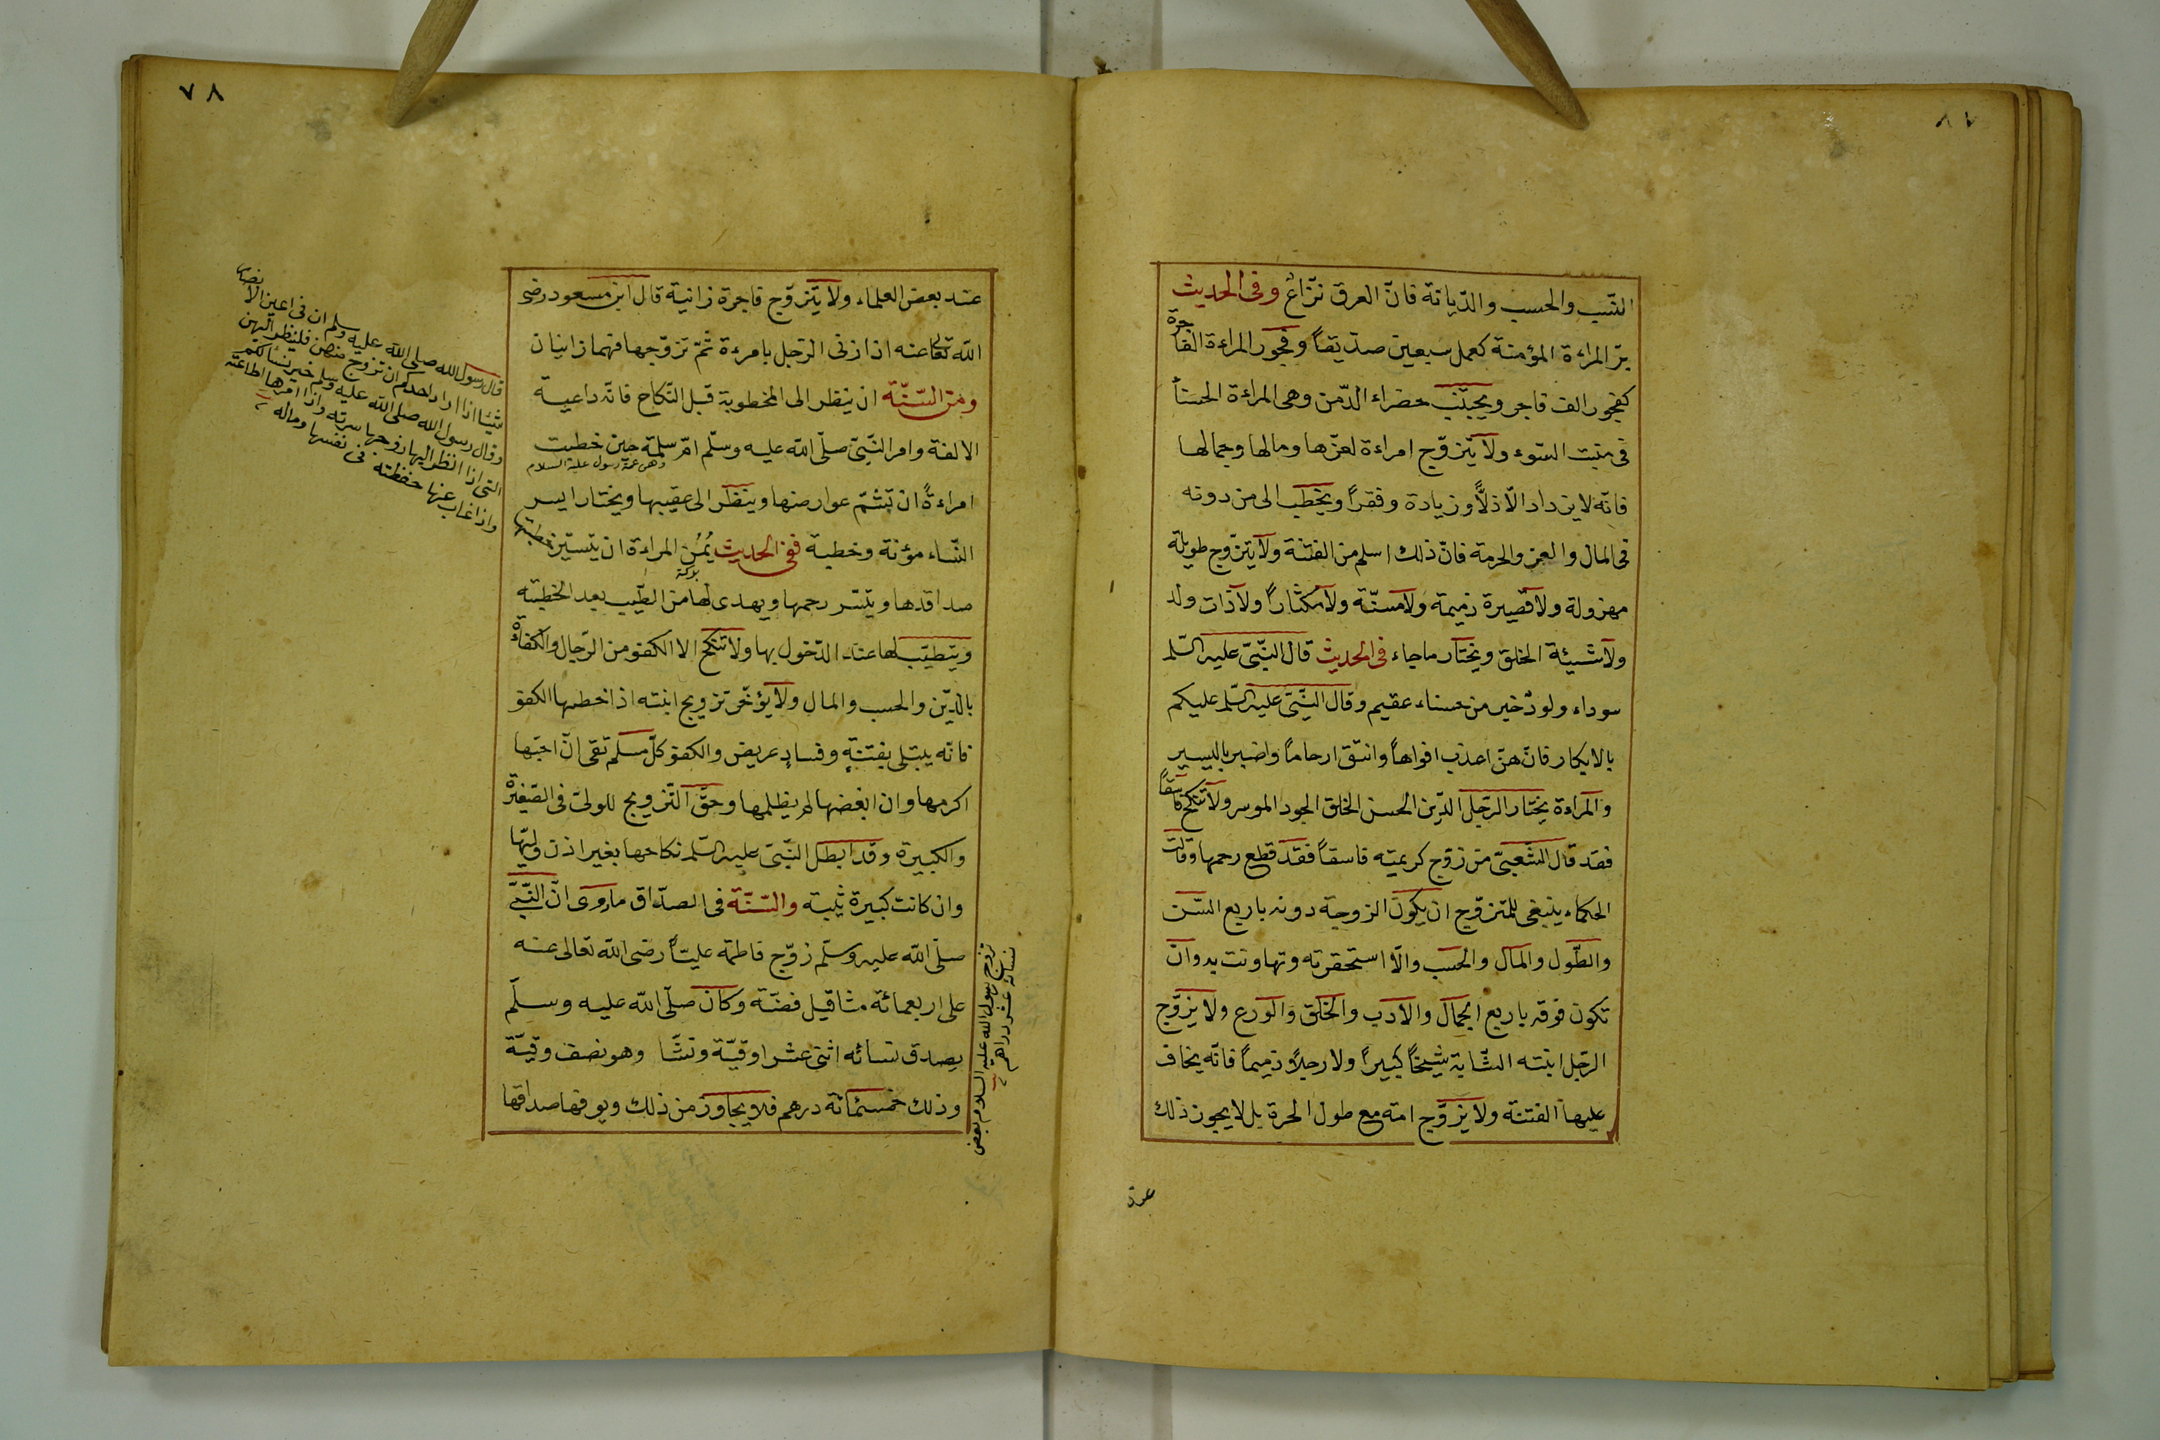 النسب والحسب والديانة فانّ العرق نزّاع وفى الحديث
برّ المراءة المؤمنة كعمل سبعين صدّيقاً وفجور المراءة الفاجرة
كفجور الف فاجر ويجتنّب حضراء الدّمن وهى المراءة الحسنأ
فى منبت السّوء ولا يتزوّج امراءة لعزّها ومالها وجمالها
فانّه لا يزداد الّا ذلاًّ وزيادة وفقراً ويخطب الى من دونه
فى المال والعز والحرمة فانّ ذلك اسلم من الفتنة ولا يتزوّج طويلة
مهزولة ولا قصيرة ذميمة ولا مسنّة ولا مكثاراً ولا ذات ولد
ولا سيّئة الخلق ويختار ماجاء فى الحديث قال النّبىّ عليه السّلم
سوداء ولودٌ خير من حسناء عقيم وقال النّبىّ عليه السّلم عليكم
بالابكار فانّ هنّ اعذب افواهاً وانتق ارحاماً وارضى باليسير
والمراءة يختار الرّجل الدّين الحسن الخلق الجود الموسر ولا تنكح فاسقاً
فقد قال الشّعبىّ من زوّج كريمته فاسقاً فقد قطع رحمها وقالت
الحكماء ينبغى للمتزوّج ان يكون الزوجة دونه باربع السّن
والطّول والمال والحسب والّا استحقرته وتهاونت به وان
تكون فوقه باربع الجمال والادب والخلق والورع ولا يزوّج
الرّجل ابنته الشّابة شيخاً كبيراً ولا رجلاً ذميماً فانّه يخاف
عليها الفتنة ولا يزوّج امته مع طول الحرة بل لا يجوز ذلك
عند
٧٨
عند بعض العلماء ولا يتزوّج فاجرة زانية قال ابن مسعود رضى
اللّه تعالى عنه اذا زنى الرّجل بامرءة ثمّ تزوّجها فهما زانيان
ومن السّنّة ان ينظر الى المخطوبة قبل النّكاح فانّه داعية
الالفة وامر النّبىّ صلّى اللّه عليه وسلّم امّ سلمة حين خطبت
وهى عمة رسول عليه السلام
امراءةً ان تشمّ عوارضها وينظر الى عقبيها ويختار ايسر
النّساء مؤنة وخطبة ففى الحديث يُمْنُ المراءة ان يتيسّر خطبتها
بركة
صداقها ويتيسّر رحمها ويهدى لها من الطّيب بعد الخطبة
ويتطيّب لها عند الدّخول بها ولا تنكح الا الكفو من الرّجال والكفاءة
بالدّين والحسب والمال ولا يؤخّر تزويج ابنته اذا خطبها الكفو
فانّه يبتلى بفتنةٍ وفسادٍ عريض والكفو كلّ مسلم تقى انّ احبّها
اكرمها وان ابغضها لم يظلمها وحقّ التّزويج للولىّ فى الصّغيرة
والكبيرة وقد ابطل النّبىّ عليه السّلم نكاحها بغير اذن وليّها
وان كانت كبيرة ثيّبة والسّنّة فى الصدّاق ماروى انّ النّبىّ
صلّى اللّه عليه وسلّم زوّج فاطمة عليّاً رضى اللّه تعالى عنه
على اربعمائة مثاقيل فضّة وكان صلّى اللّه عليه وسلّم
يصدق نسائه اثنى عشر اوقيّة ونشّا وهو نصف وقيّة
وذلك خمسمائة درهم فلا يجاوز من ذلك ويوفها صداقها
قال رسول الله صلى الله عليه وسلم ان فى اعين الانصار
شيئا اذا اراد احدكم ان تزوج منهن فلينظر اليهن
وقال رسول الله صلى الله عليه وسلم خير نسائكم
التى اذا انظر اليها زوجها سرته واذا امرها اطاعته
واذا غاب عنها حفظته فى نفسها وماله
تزوج رسول الله عليه السلام بعض
نسائه عشر دراهم